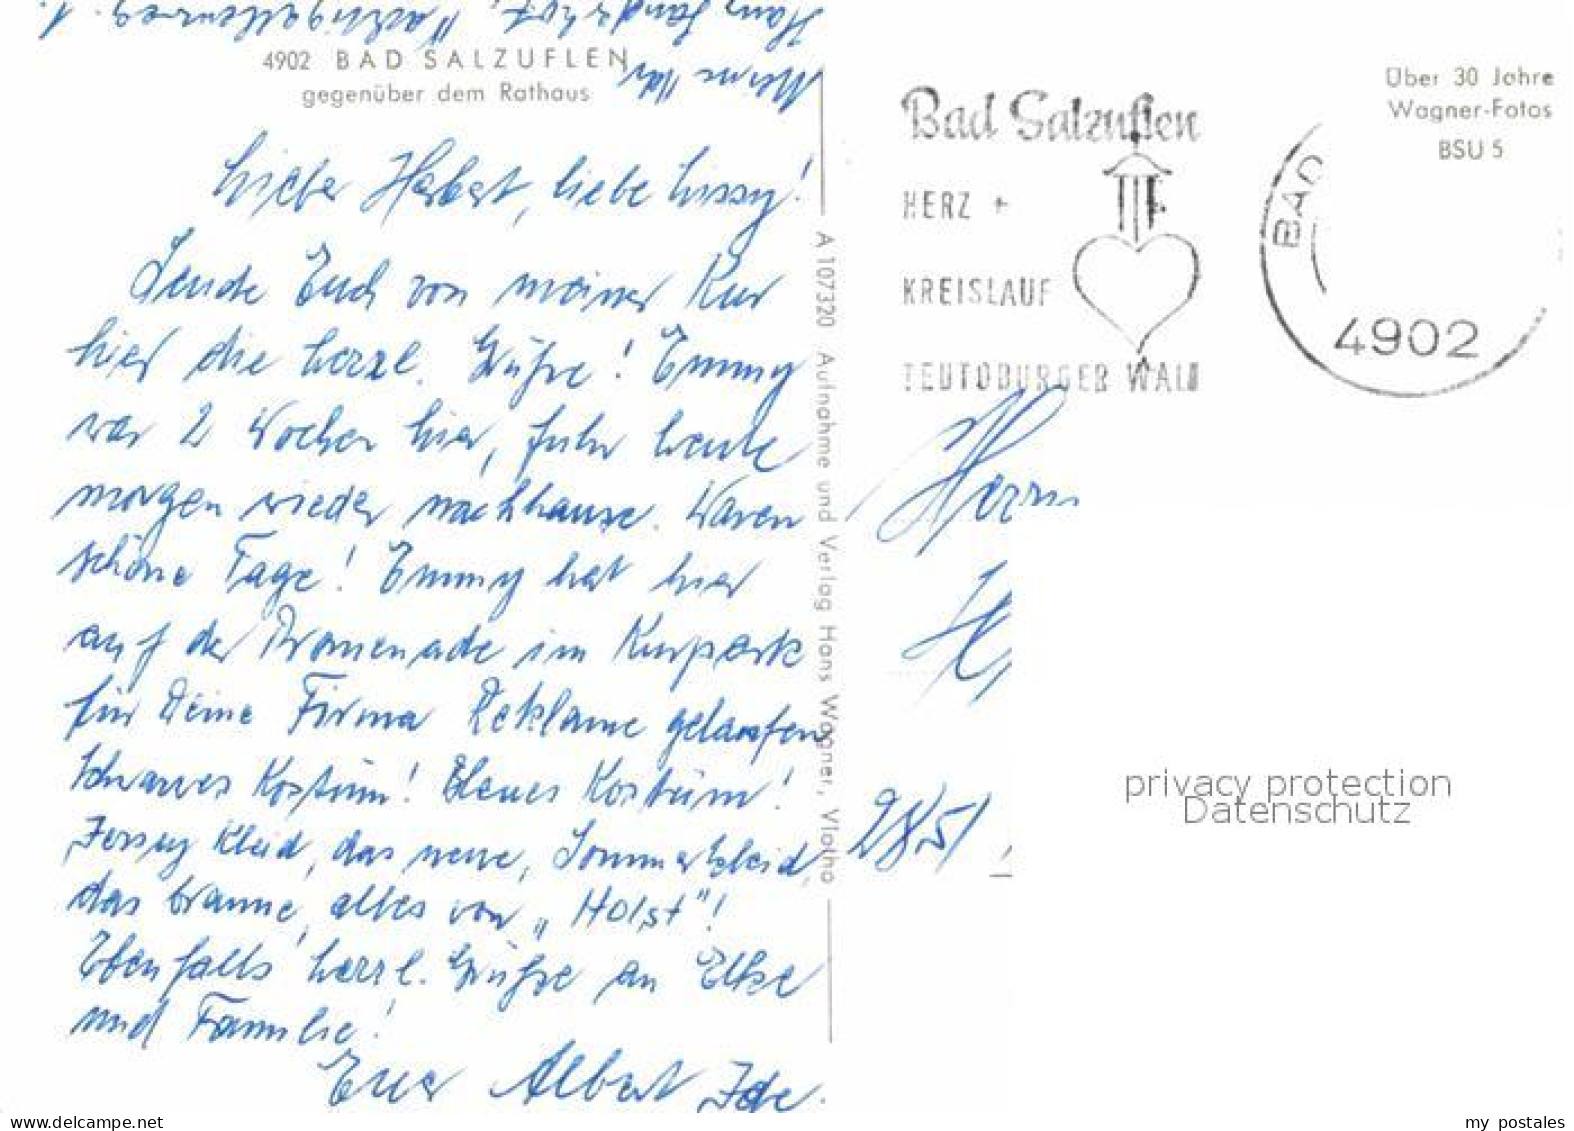 4902 BAD SALZUFLEN
gegenüber dem Rathaus
Lieber Herbert, liebe Lissy!
Sende Euch von meiner Kur
hier die herzl. Grüße! Emmy
war 2 Wochen hier, fuhr heute
morgen wieder nachhause. Waren
schöne Tage! Emmy hat hier
auf der Promenade im Kurpark
für Deine Firma Reklame gelaufen
Schwarzes Kostüm! Blaues Kostüm!
Jersey Kleid, das neue, Sommerkleid,
das braune, alles von „Holst"!
Ebenfalls herzl. Grüße an Elke
und Familie!
Euer Albert Ide.
A 107320 Aufnahme und Verlag Hans Wagner, Vlotho
Bad Salzuflen
HERZ +
KREISLAUF
TEUTOBURGER WALD
BAD
4902
Über 30 Jahre
Wagner-Fotos
BSU 5
Herrn
H
2851
privacy protection
Datenschutz
my postales